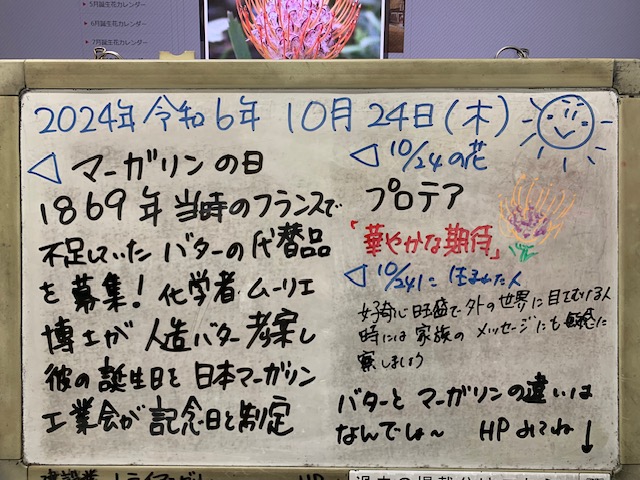 5月誕生花カレンダー
6月誕生花カレンダー
7月誕生花カレンダー
2024年 令和6年 10月24日(木)
マーガリンの日
1869年 当時のフランスで
不足していた バターの代替品
を募集! 化学者 ムーリエ
博士が 人造バター考案し
彼の誕生日を 日本マーガリン
工業会が 記念日と制定
10/24の花
プロテア
「華やかな期待」
10/24に 生まれた人
好奇心旺盛で外の世界に目てむける人
時には 家族の メッセージにも 敏感に
察しましょう
バターと マーガリンの違いは
なんでしょ〜 HPみてね↓